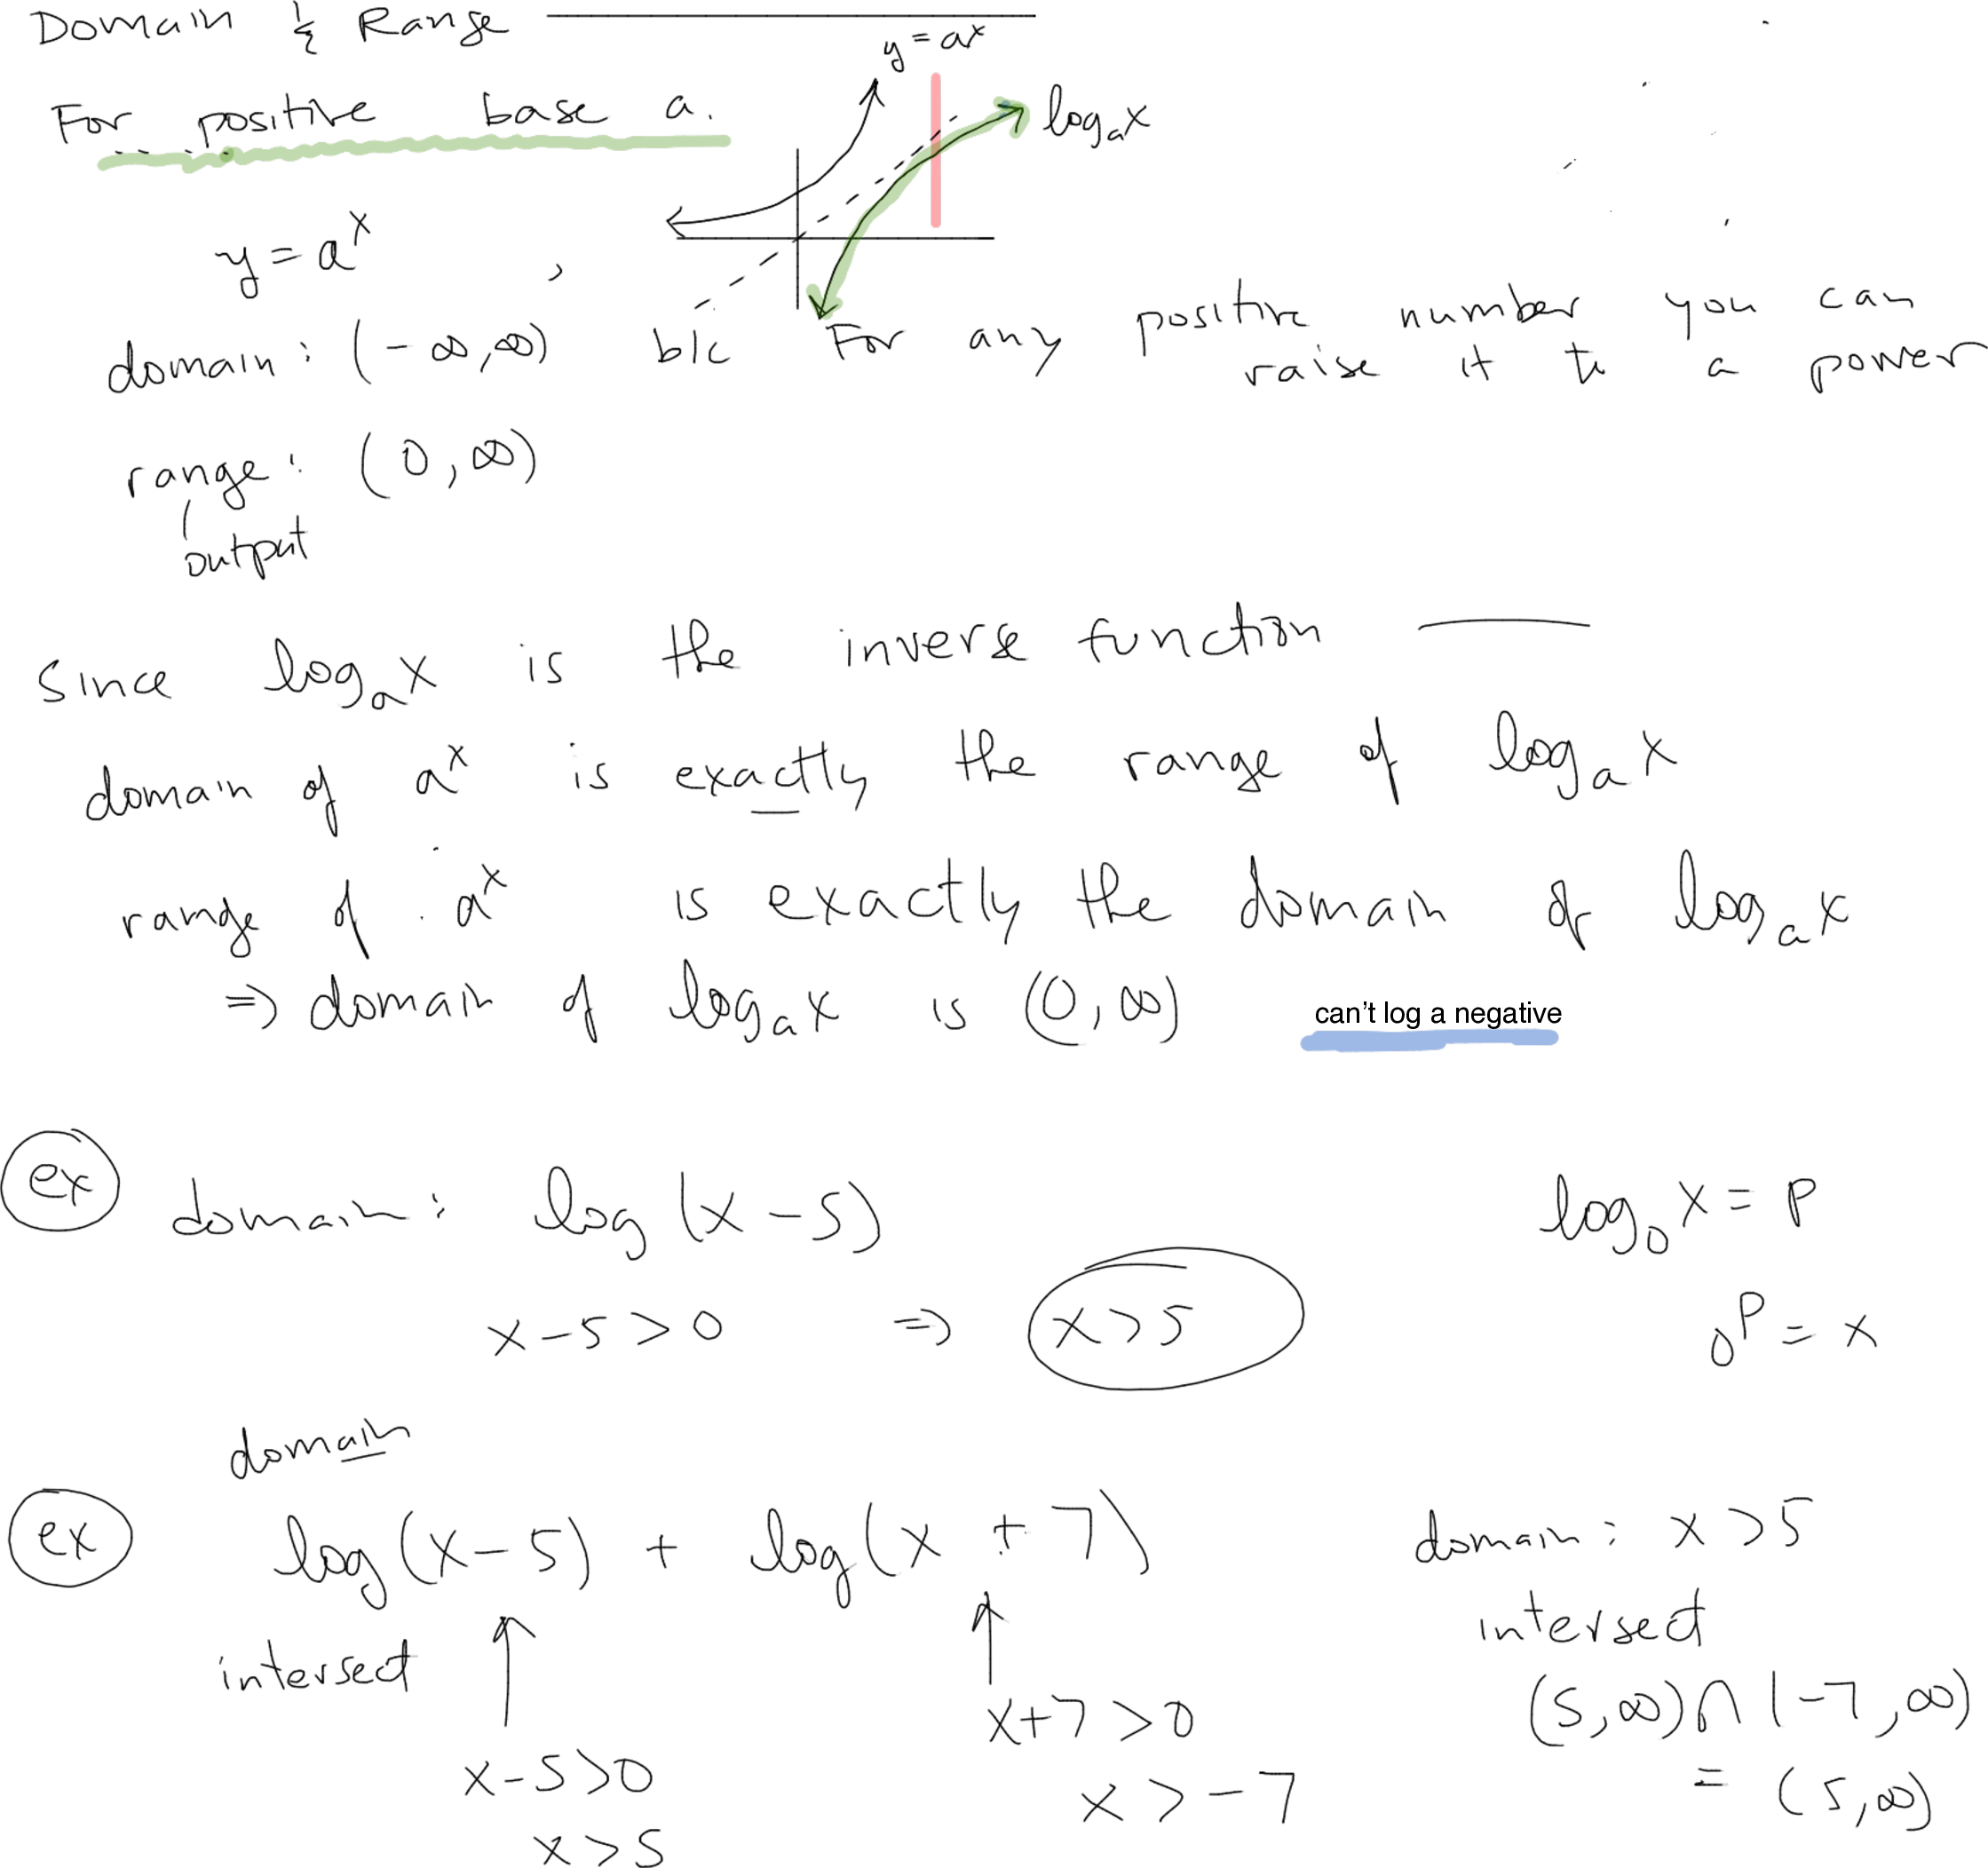 Domain & Range
y = aˣ
For positive base a.
logₐx
y = aˣ ,
domain: (-∞,∞) b/c For any positive number you can
raise it to a power
range: (0,∞)
output
Since logₐx is the inverse function
domain of aˣ is exactly the range of logₐx
range of aˣ is exactly the domain of logₐx
=> domain of logₐx is (0,∞) can't log a negative
ex domain: log(x-5)
x-5>0 => x>5
log₀x = p
0ᵖ = x
domain
ex log(x-5) + log(x+7)
intersect
x-5>0
x>5
x+7>0
x>-7
domain: x>5
intersect
(5,∞)∩(-7,∞)
= (5,∞)